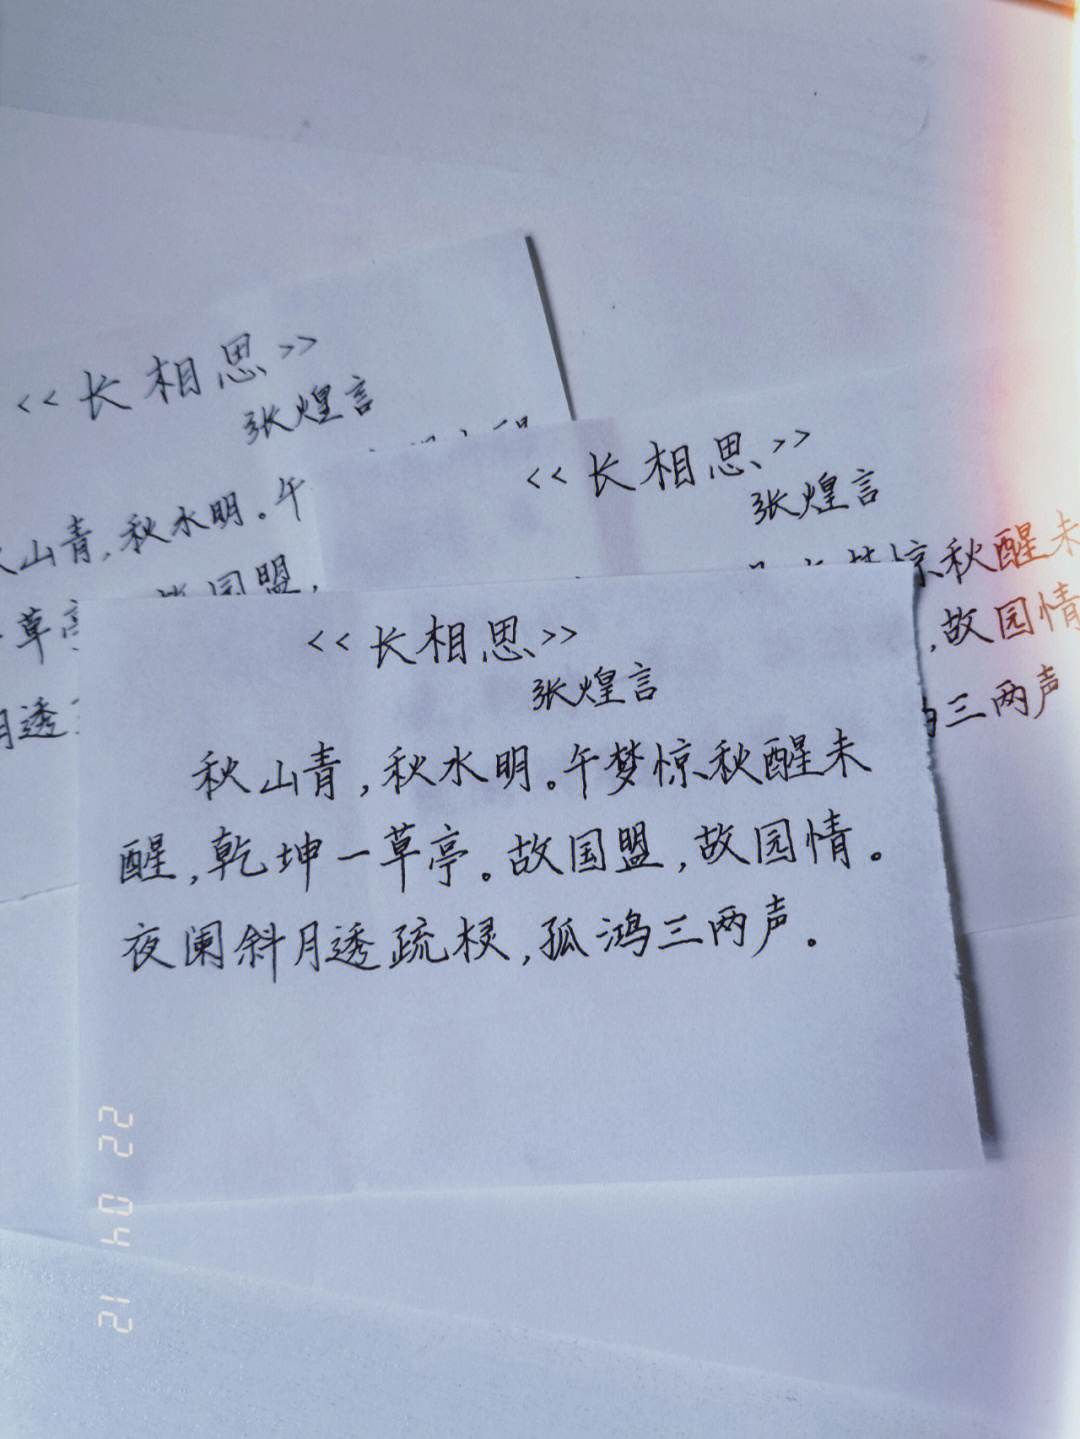 <<长相思>>
张煌言
山青,秋水明。午
草
国盟,
透
<<长相思>>
张煌言
惊秋醒未
,故园情
三两声
<<长相思>>
张煌言
秋山青,秋水明。午梦惊秋醒未
醒,乾坤一草亭。故国盟,故园情。
夜阑斜月透疏棂,孤鸿三两声。
22 04 12